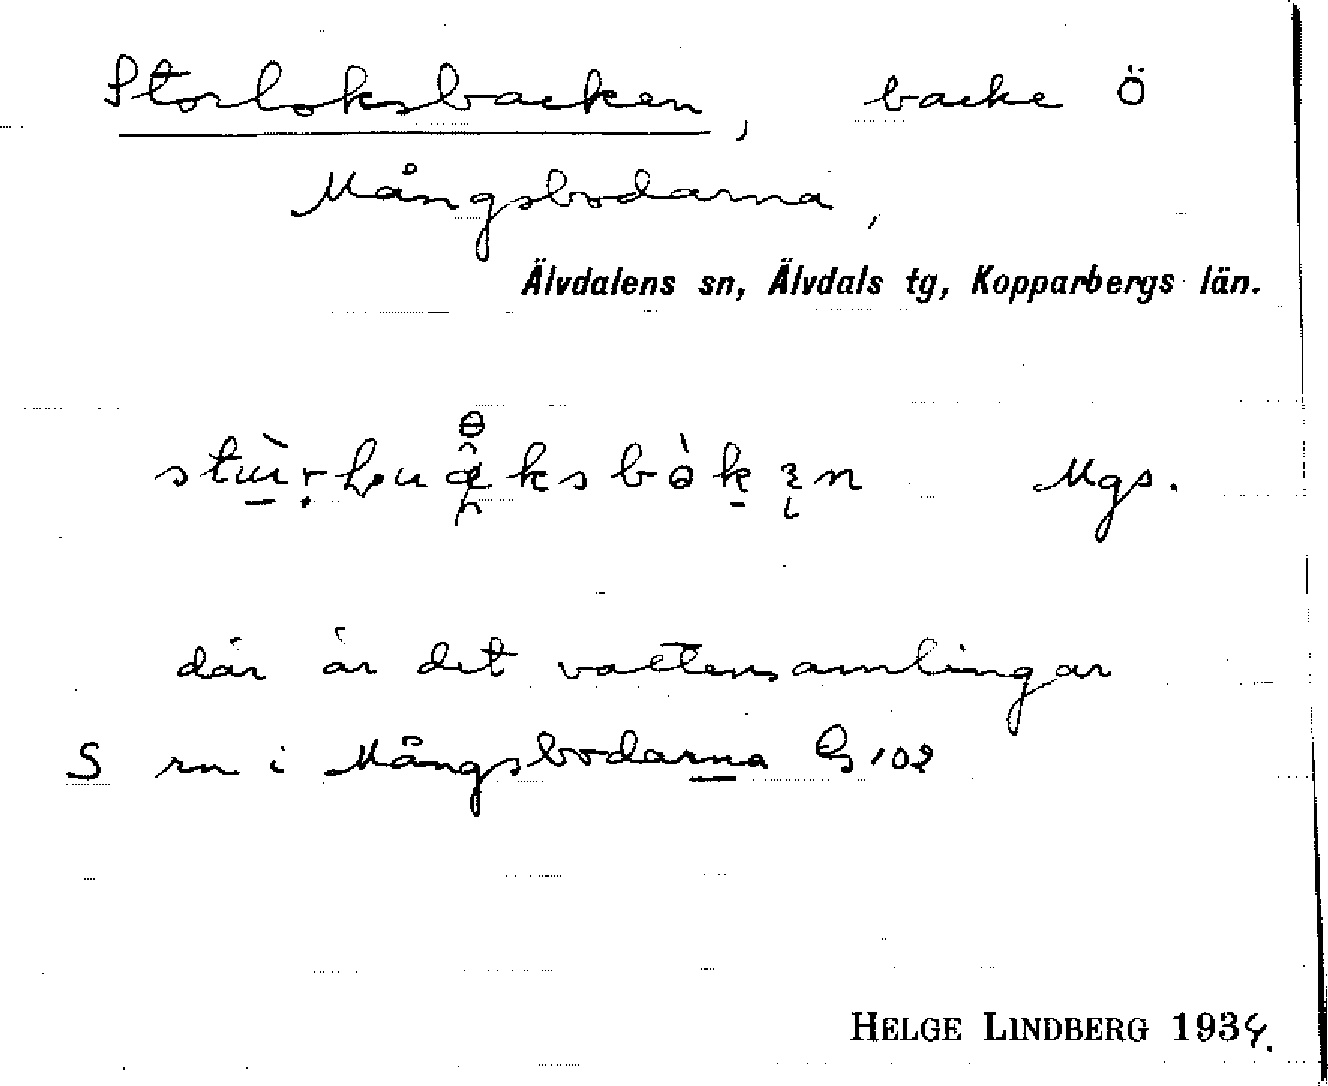 Storloksbacken, backe Ö
Mångsbodarna,
Älvdalens sn, Älvdals tg, Kopparbergs län.
Mgs.
där är det vattensamlingar
S rn i Mångsbodarna G 102
HELGE LINDBERG 1934.